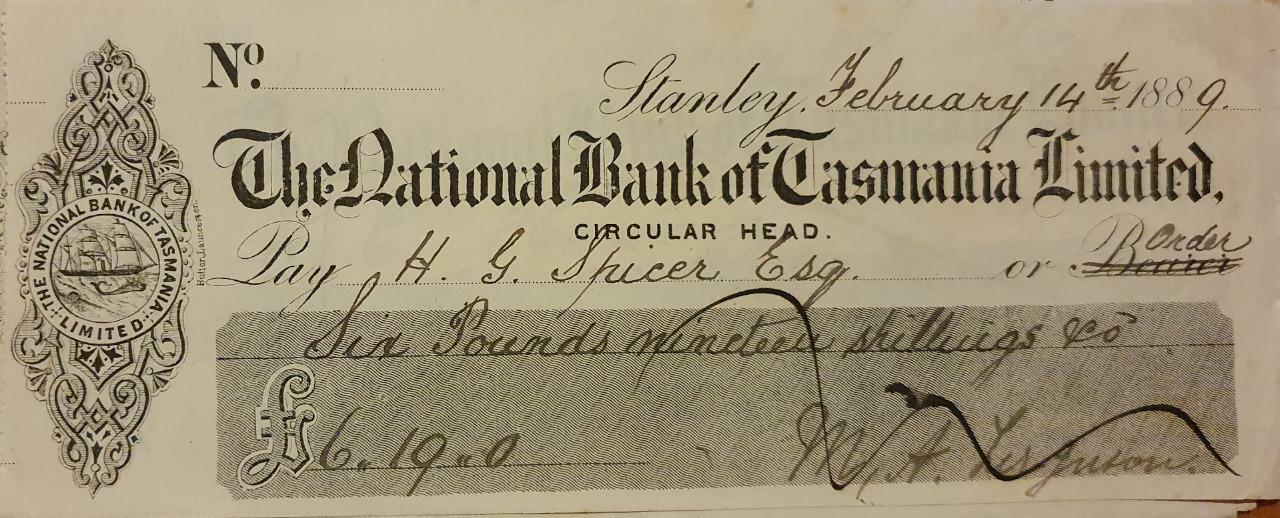 No.
Stanley, February 14th 1889.
The National Bank of Tasmania Limited,
CIRCULAR HEAD.
Pay H. G. Spicer Esq. or Bearer Order
Six Pounds nineteen shillings &c
£6. 19. 0
M. A. Ferguson.
THE NATIONAL BANK OF TASMANIA
LIMITED
Hutton Launceston